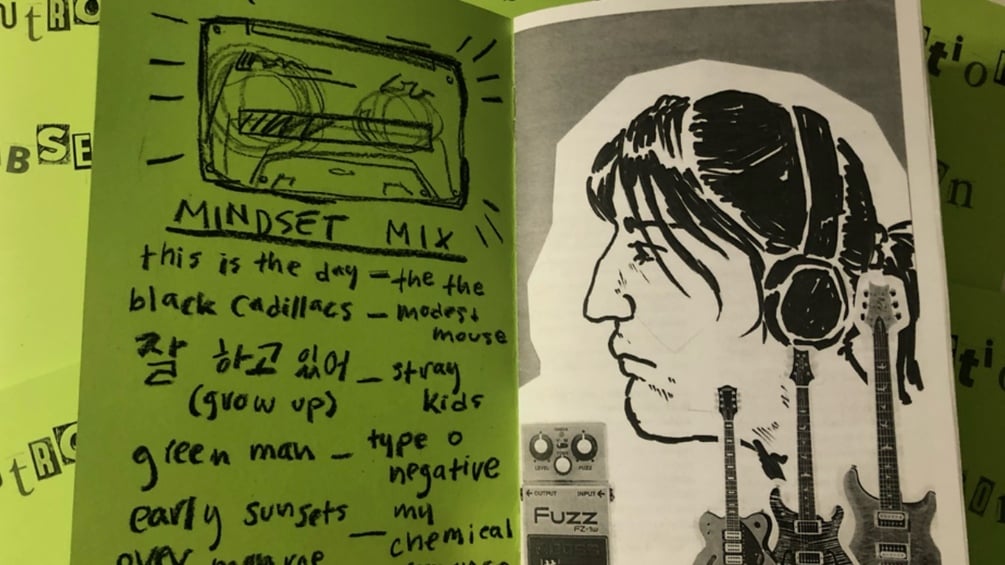 MINDSET MIX
this is the day – the the
black cadillacs – modest
mouse
잘 하고 있어 – stray
(grow up) kids
green man – type o
negative
early sunsets – my
chemical
over monroe
LEVEL FUZZ
OUTPUT INPUT
Fuzz
FZ-1W
BOSS
UTRO
BSE
TRO
tio
n
tio